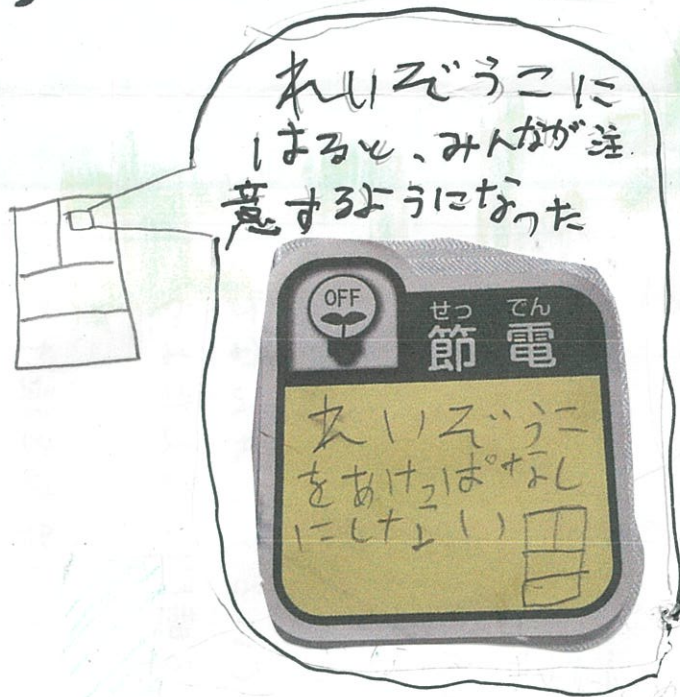 れいぞうこに
はると、みんなが注
意するようになった
OFF
せつ でん
節電
れいぞうこ
をあけっぱなし
にしない